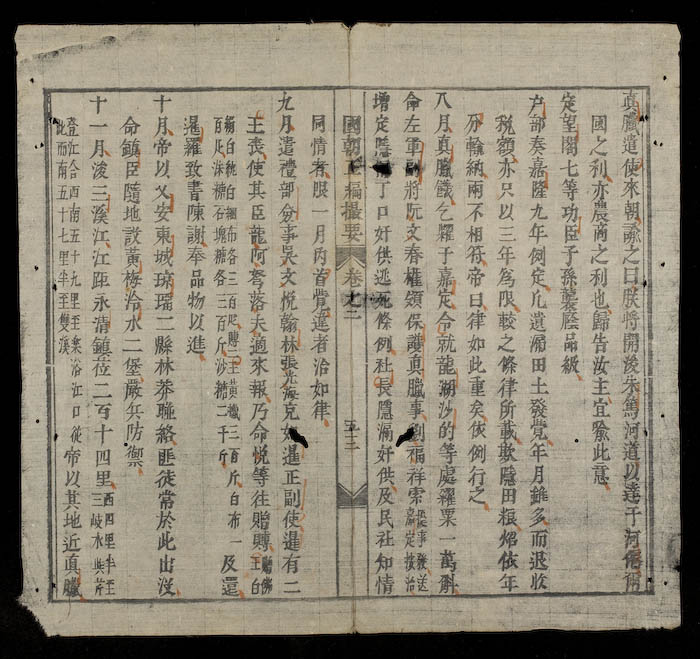 真臘遣使來朝諭之曰朕將開浚朱篤河道以達于河僊爾
國之利亦農商之利也歸告汝主宜喻此意
定望閣七等功臣子孫襲蔭品級
户部奏嘉隆九年例定凡遺漏田土發覺年月雖多而退收
税額亦只以三年為限較之條律所載欺隱田粮焰依年
分輸納兩不相符帝曰律如此重矣依例行之
八月真臘饑乞糴于嘉定令就龍湖沙的等處糴粟一萬斛
命左軍副將阮文春權領保護真臘事劉福祥索
嘉定按治
增定隱漏丁口奸供逃死條例社長隱漏奸供及民社知情
同情者限一月内首實違者治如律
九月遣禮部僉事吳文悅翰林張光海充如暹正副使暹有二
王喪使其臣龍阿弩落夫道來報乃命悅等往賵賻
百疋沫糖石塊糖各三百斤沙糖二千斤
暹羅致書陳謝奉品物以進
十月帝以乂安東城瓊瑠二縣林莽聯絡匪徒常於此出沒
命鎮臣隨地設黃梅冷水二堡嚴兵防禦
十一月浚三溪江江距永清鎮莅二百十四里
西四里半至
三岐水與芹
登江合西南五十九里至樂浴江口從
此而南五十七里半至雙溪
帝以其地近真臘
國朝正編撮要
卷之二
五十三